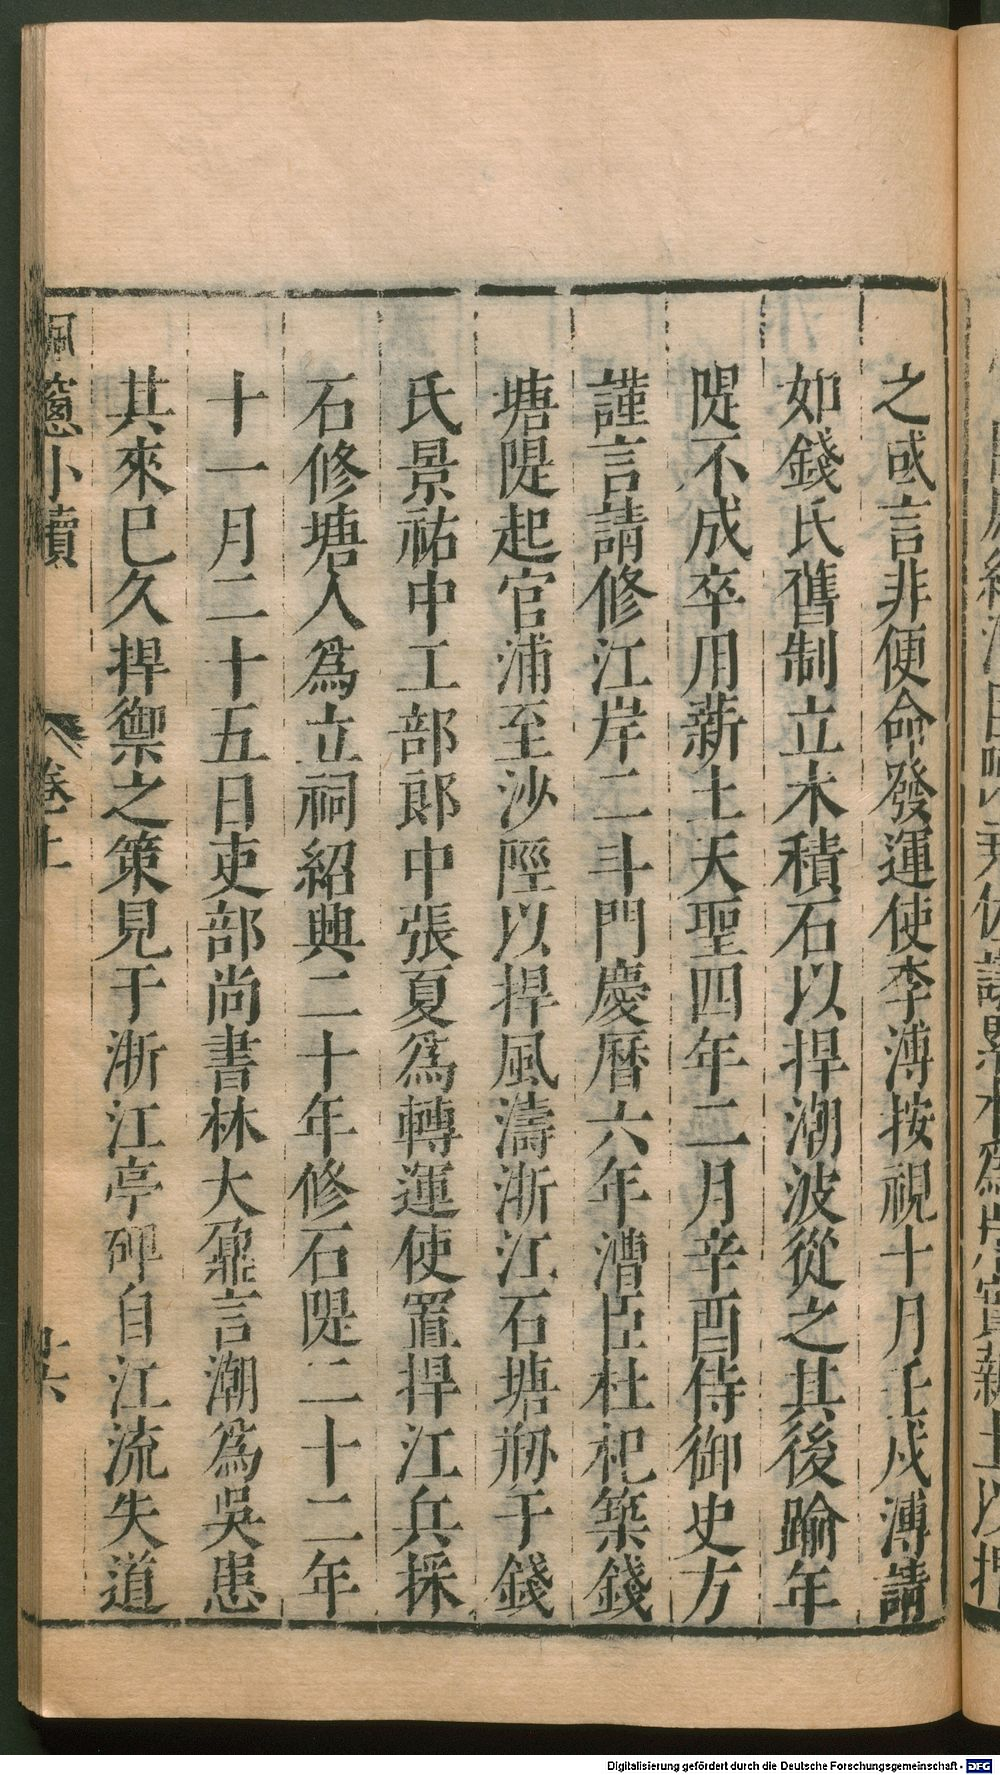 之或言非便命發運使李溥按視十月壬戌溥請
如錢氏舊制立木積石以捍潮波從之其後踰年
隄不成卒用薪土天聖四年二月辛酉侍御史方
謹言請修江岸二斗門慶曆六年漕臣杜杞築錢
塘隄起官浦至沙陘以捍風濤浙江石塘刱于錢
氏景祐中工部郎中張夏爲轉運使置捍江兵採
石修塘人爲立祠紹興二十年修石隄二十二年
十一月二十五日吏部尚書林大鼐言潮爲吳患
其來已久捍禦之策見于浙江亭碑自江流失道
小牘
卷上
Digitalisierung gefördert durch die Deutsche Forschungsgemeinschaft - DFG